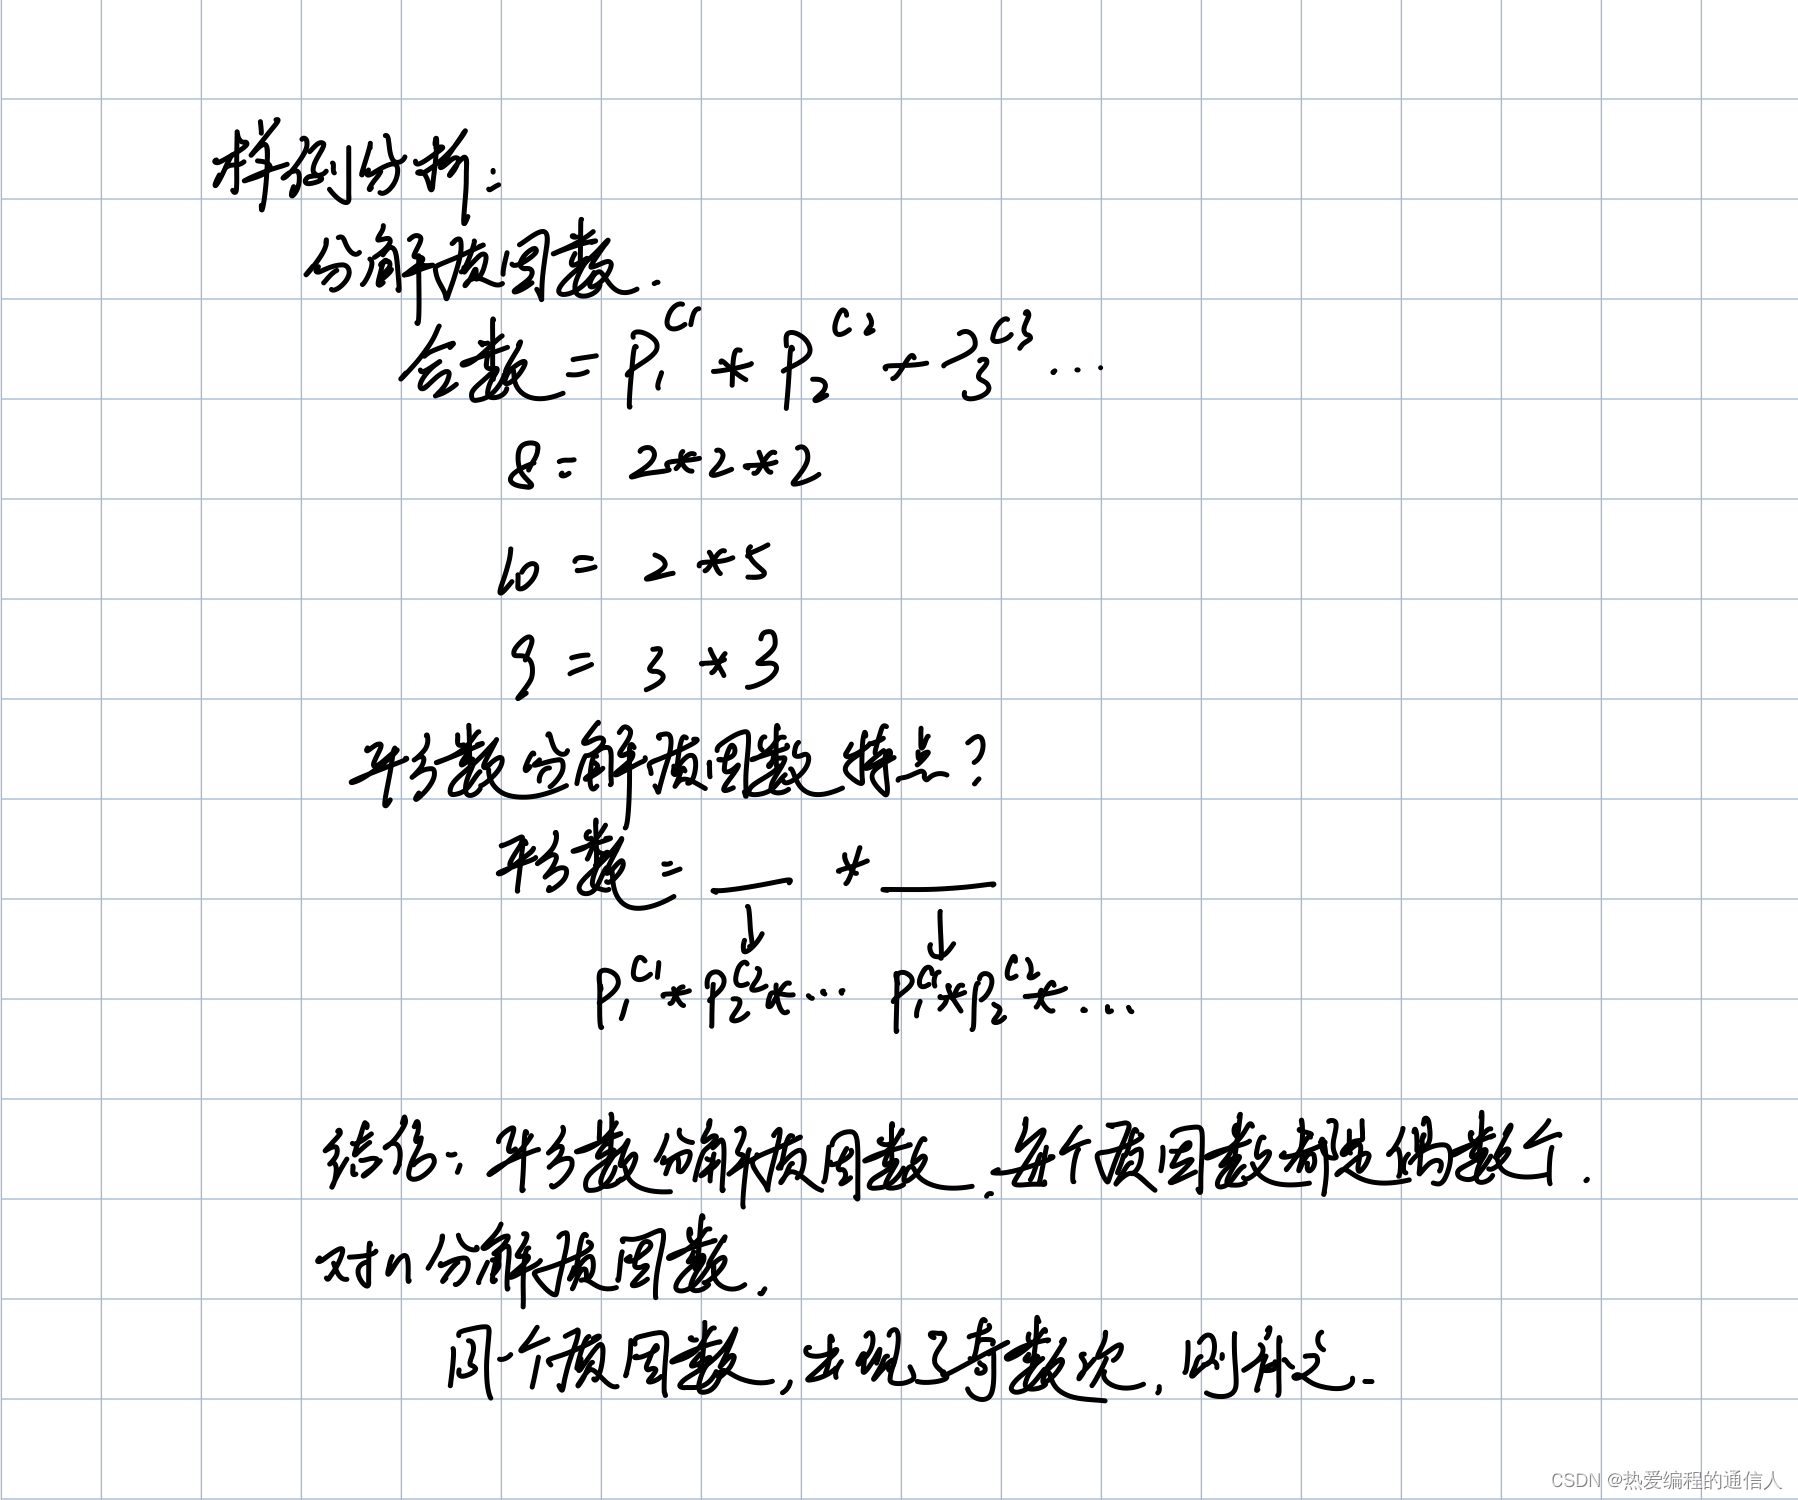 样例分析:
分解质因数.
合数 = P₁^C1 * P₂^C2 * P₃^C3 ...
8 = 2*2*2
10 = 2*5
9 = 3*3
平方数分解质因数特点?
平方数 = ___ * ___
↓ ↓
P₁^C1*P₂^C2*... P₁^C1*P₂^C2*...
结论: 平方数分解质因数,每个质因数都是偶数个.
对n分解质因数,
同一个质因数,出现了奇数次,则补之.
CSDN @热爱编程的通信人